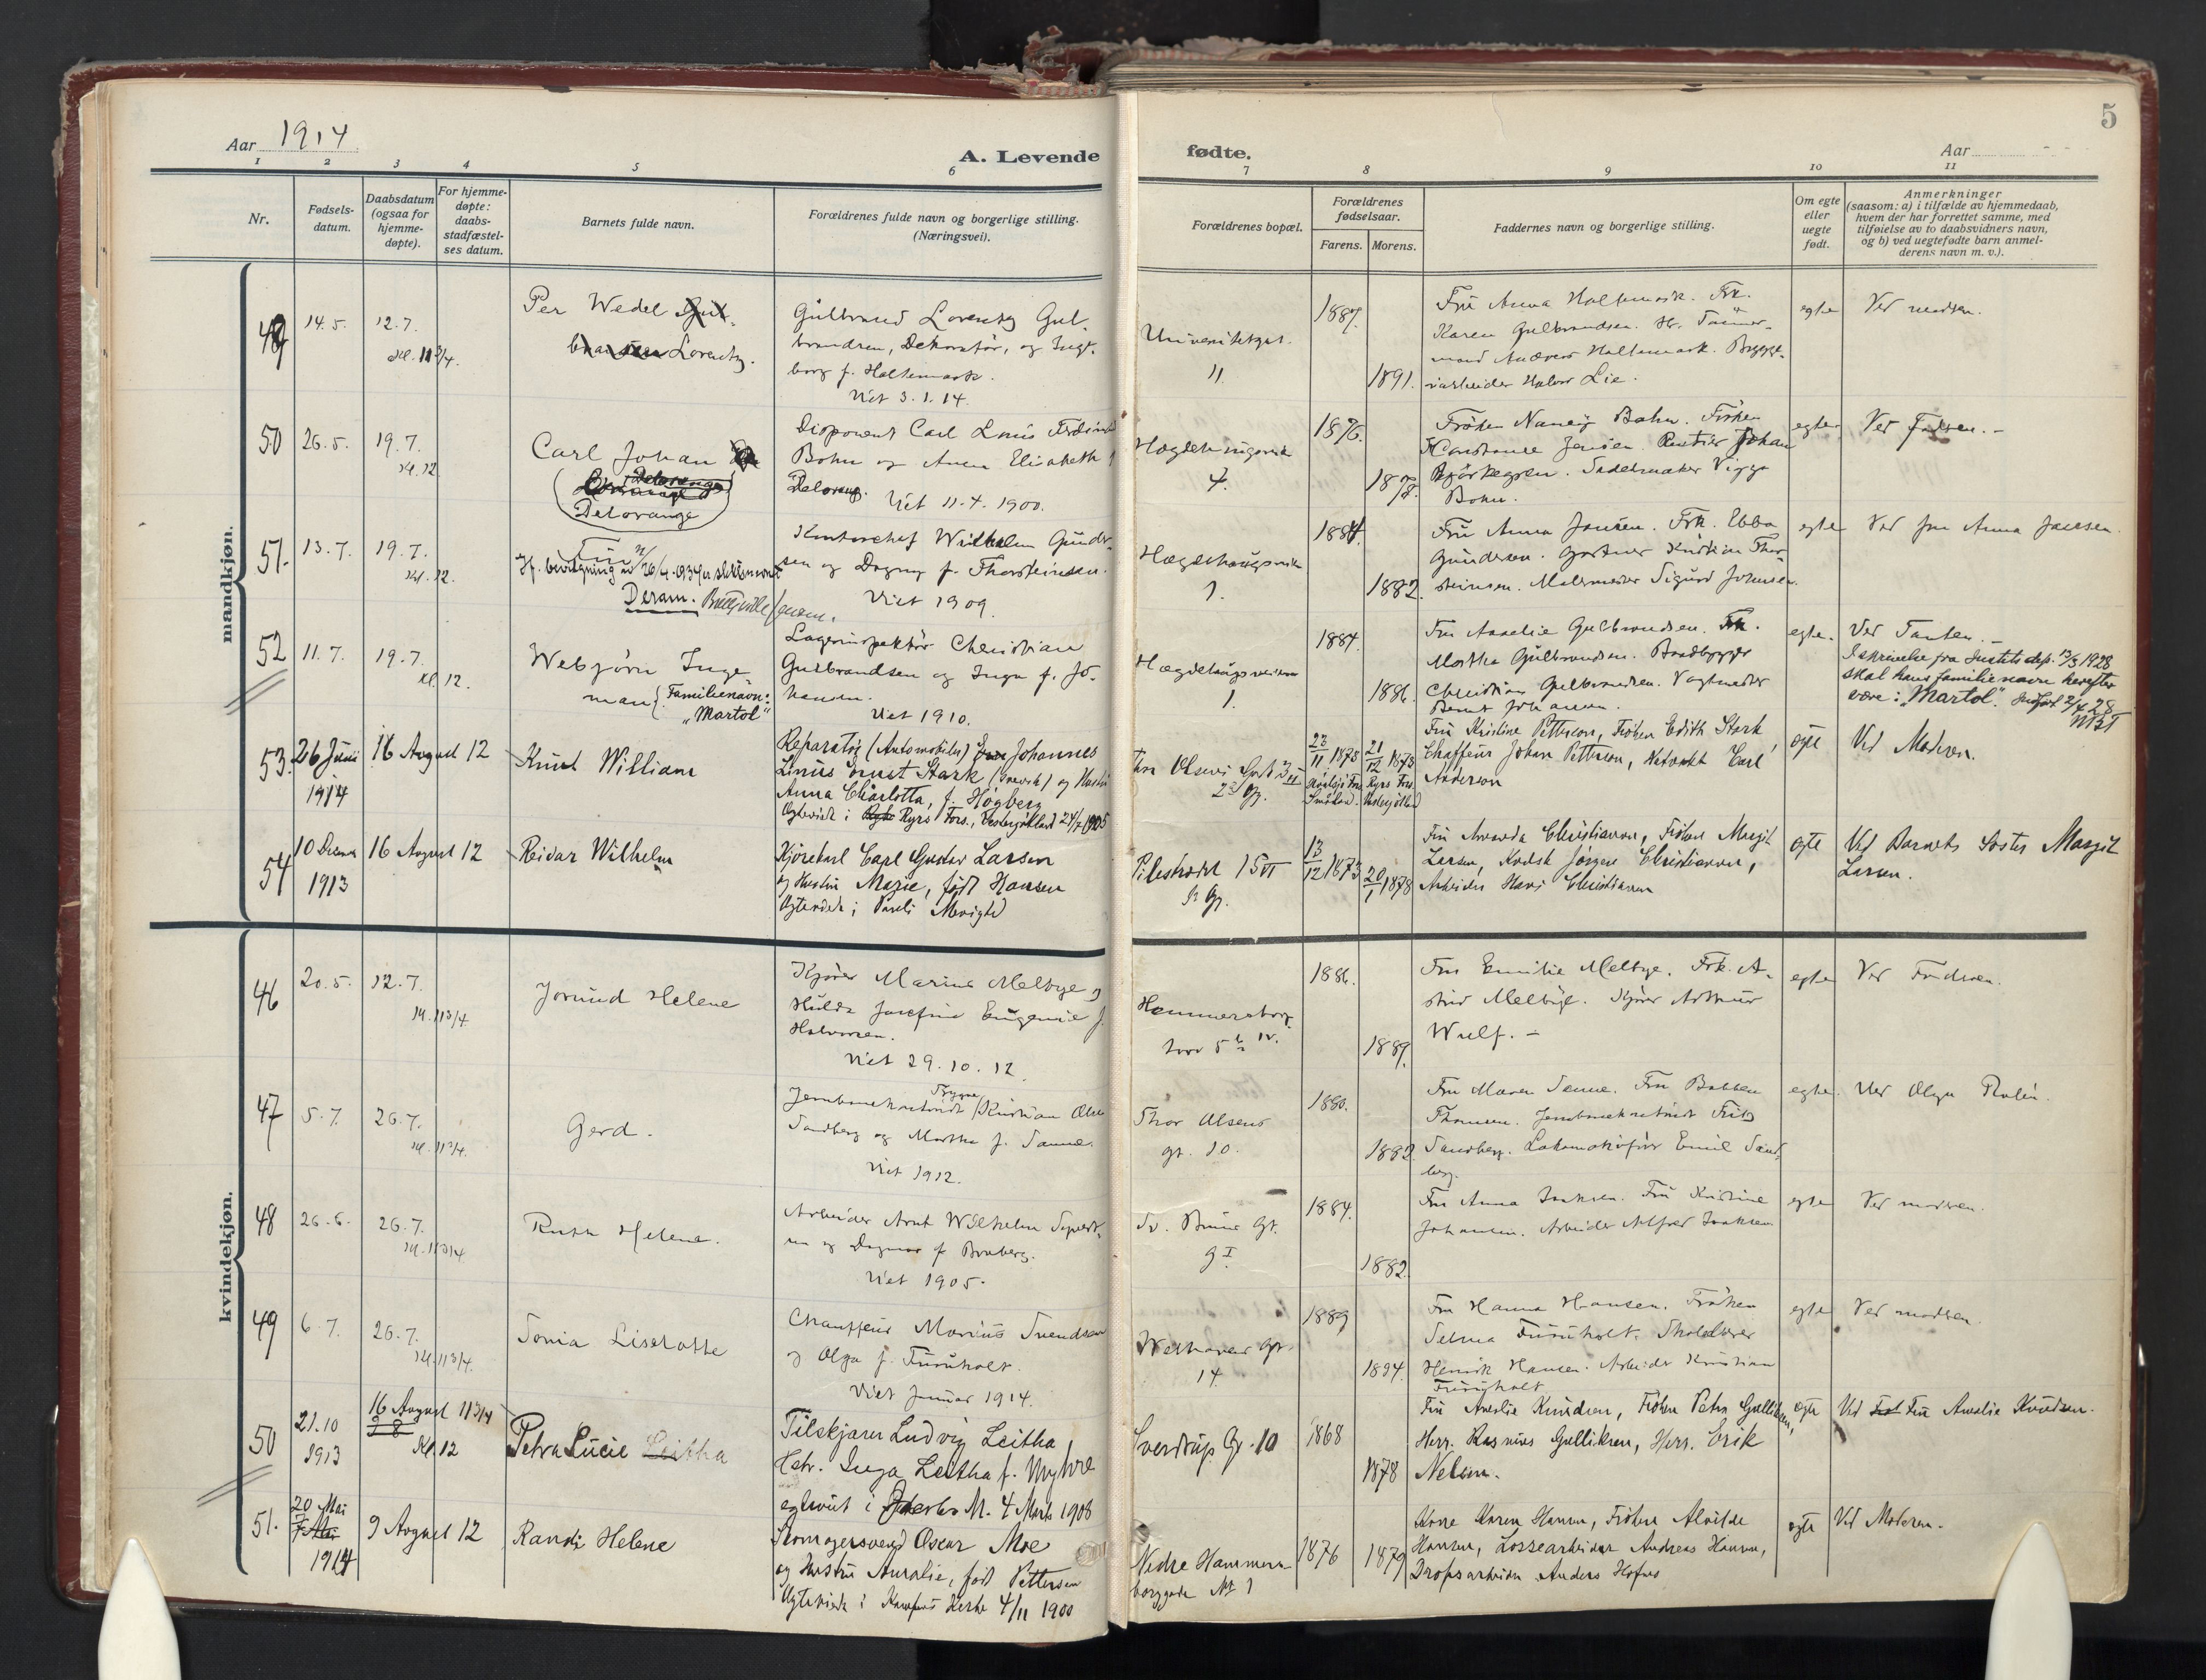 5
Aar 1914
A. Levende
fødte.
Aar
1 2 3 4 5 6 7 8 9 10 11
Nr.
Fødsels-
datum.
Daabsdatum
(ogsaa for
hjemme-
døpte).
For hjemme-
døpte:
daabs-
stadfæstel-
ses datum.
Barnets fulde navn.
Forældrenes fulde navn og borgerlige stilling.
(Næringsvei).
Forældrenes bopæl.
Forældrenes
fødselsaar.
Farens. Morens.
Faddernes navn og borgerlige stilling.
Om egte
eller
uegte
født.
Anmerkninger
(saasom: a) i tilfælde av hjemmedaab,
hvem der har forrettet samme, med
tilføielse av to daabsvidners navn,
og b) ved uegtefødte barn anmel-
derens navn m. v.).
mandkjøn.
49
14. 5.
12. 7.
Kl. 11 3/4.
Per Wedel
Lorentz.
Gulbrand Lorentz Gul-
brandsen, Dekoratør, og Inge-
borg f. Holtemark.
Viet 3. 1. 14.
Universitetsgt.
11.
1889.
1891.
Fru Anna Holtemark. Frk.
Karen Gulbrandsen. Hr. Tømmer-
mand Andreas Holtemark. Brygge-
riarbeider Halvor Lie.
egte
Ved moderen.
50
26. 5.
19. 7.
Kl. 12
Carl Johan
Delorange
Disponent Carl Louis Ferdinand
Bohn og Anna Elisabeth f.
Delorang. Viet 11. 4. 1900.
Hægdehaugsvk
4.
1876.
1878.
Frøken Nancy Bohn. Frøken
Constance Jensen. Johan
Björkegren. Sadelmaker Viggo
Bohn.
egte
Ved faderen. -
51.
13. 7.
19. 7.
Kl. 12.
Finn
Hf. bevilgning av 26/4. 1934 er slektsnavnet
Deram.
Kontorchef Wilhelm Gunder-
sen og Dagny f. Thorsteinsen.
Viet 1909.
Hægdehaugsveien
1.
1884.
1882.
Fru Anna Jansen. Frk. Ebba
Gundersen. Gartner Kristian Thor-
steinsen. Malermester Sigurd Johnsen.
egte
Ved fru Anna Jansen.
52
11. 7.
19. 7.
Kl. 12.
Webjørn Inge
man { Familienavn:
"Martol"
Lagerinspektør Christian
Gulbrandsen og Inga f. Jo-
hansen.
Viet 1910.
Hægdehaugsveien
1.
1884.
1886.
Fru Amalie Gulbrandsen. Frk.
Martha Gulbrandsen. Baadbygger
Christian Gulbrandsen. Vagtmester
Bernt Johansen.
egte.
Ved Tanten. -
I skrivelse fra Justitsdep. 13/3 1928
skal hans familienavn herefter
være: "Martol". Indført 2/4 28
53.
26 Juni
1914
16 August 12
Knut William
Reparatør (Automobiler) Johannes
Linus Ernst Stark (svensk) og Hustru
Anna Charlotta, f. Høgberg
Ægteviet i Ryrs Fors., Vestergøtland 24/7 1905
Thor Olsens Gade 3 II
23/11 1875
21/12 1873
Småland.
Ryrs Fors.
Vestergøtland
Fru Kristine Petterson, Frøken Edith Stark,
Chaffeur Johan Petterson, Carl
Anderson
egte
Ved Moderen.
54
10 Decemb
1913
16 August 12
Reidar Wilhelm
Kjørekarl Carl Gustav Larsen
og Hustru Marie, født Hansen
Ægteviet i Menighed
Pilestrædet 75 VI
13/12 1873
20/1 1878
Fru Amanda Christiansen, Frøken Margit
Larsen, Kudsk Jørgen Christiansen,
Arbeider Hans Christiansen
egte
Ved Barnets Søster Margit
Larsen.
kvindekjøn.
46
20. 5.
12. 7.
Kl. 11 3/4.
Jorund Helene
Kjører Marius Melbye og
Hulda Josefine Eugenie f.
Halvorsen.
Viet 29. 10. 12.
Hammersborg
torv 5 b IV.
1886.
1889.
Fru Emilie Melbye. Frk. A-
strid Melbye. Kjører Arthur
Wulf. -
egte
Ved Faderen.
47
5. 7.
26. 7.
Kl. 11 3/4.
Gerd.
Trygve
Jernbanekontorist Kristian Olsen
Sandberg og Martha f. Sanne.
Viet 1912.
Thor Olsens
gt. 10.
1880.
1882.
Fru Maren Sanne. Fru Bolette
Thomsen. Jernbanekontorist Fritz
Sandberg. Lokomotivfører Emil Sand-
berg.
egte.
Ved Olga Thalin.
48
26. 6.
26. 7.
Kl. 11 3/4
Ruth Helene.
Arbeider Arnt Wilhelm Sivert-
sen og Dagmar f. Broberg.
Viet 1905.
Sv. Bruns Gt.
9 I.
1884.
1882.
Fru Anna Isaksen. Fru Kristine
Johansen. Arbeider Alfred Isaksen
egte
Ved moderen.
49
6. 7.
26. 7.
Kl. 11 3/4.
Sonia Liselotte
Chauffeur Marius Svendsen
og Olga f. Furuholt.
Viet Januar 1914.
Wessels gt.
14.
1889
1894.
Fru Hanna Hansen. Frøken
Selma Furuholt. Skolelærer
Henrik Hansen. Arbeider Kristian
Furuholt.
egte
Ved moderen.
50
21. 10
1913
16 August 11 3/4
9 8
Kl 12
Petra Lucie Leitha
Tilskjærer Ludvig Leitha
Hstr. Inga Leitha f. Myhre
egteviet i Jakobs M. 4 Marts 1908
Sverdrups Gt. 10
1868
1878
Fru Amalie Knudsen, Frøken Petra Gulliksen,
Herr. Rasmus Gulliksen, Herr. Erik
Nelson.
egte
Ved Fru Amalie Knudsen.
51.
20 Mai
1914
9 August 12
Randi Helene
Skomagersvend Oscar Moe
og Hustru Auralie, født Pettersen
Ægteviet i Kampens Kirke 4/11 1900
Nedre Hammers-
borggade No 1
1876
1879
Kone Karen Hansen, Frøken Alvilde
Hansen, Lossearbeider Andreas Hansen,
Dropsarbeider Anders Hofnes
egte
Ved Moderen.